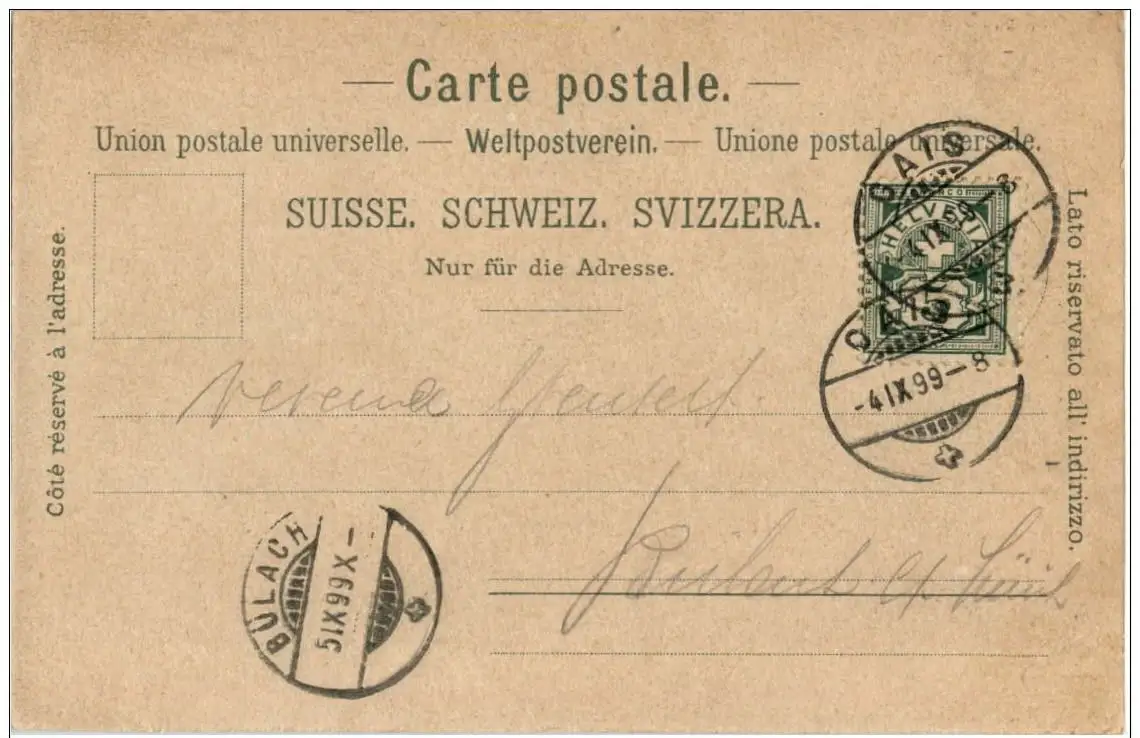 — Carte postale. —
Union postale universelle. — Weltpostverein. — Unione postale universale.
SUISSE. SCHWEIZ. SVIZZERA.
Nur für die Adresse.
Côté réservé à l'adresse.
Lato riservato all' indirizzo.
GAIS
HELVETIA
FRANCO
-4IX99-8
Verena
BÜLACH
5IX99X-